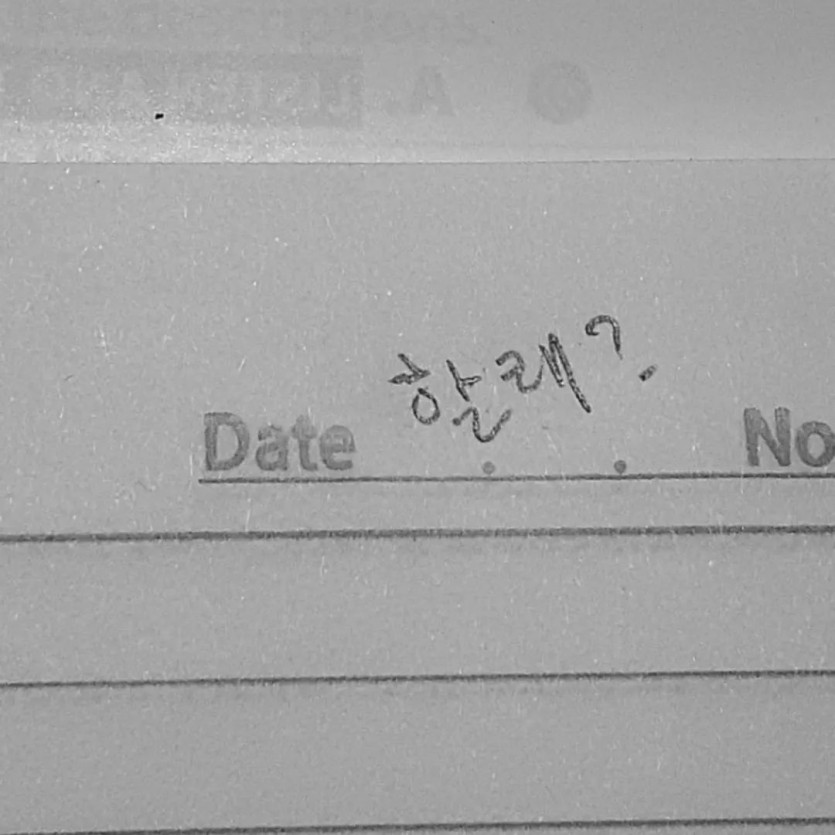 Date 할래? No